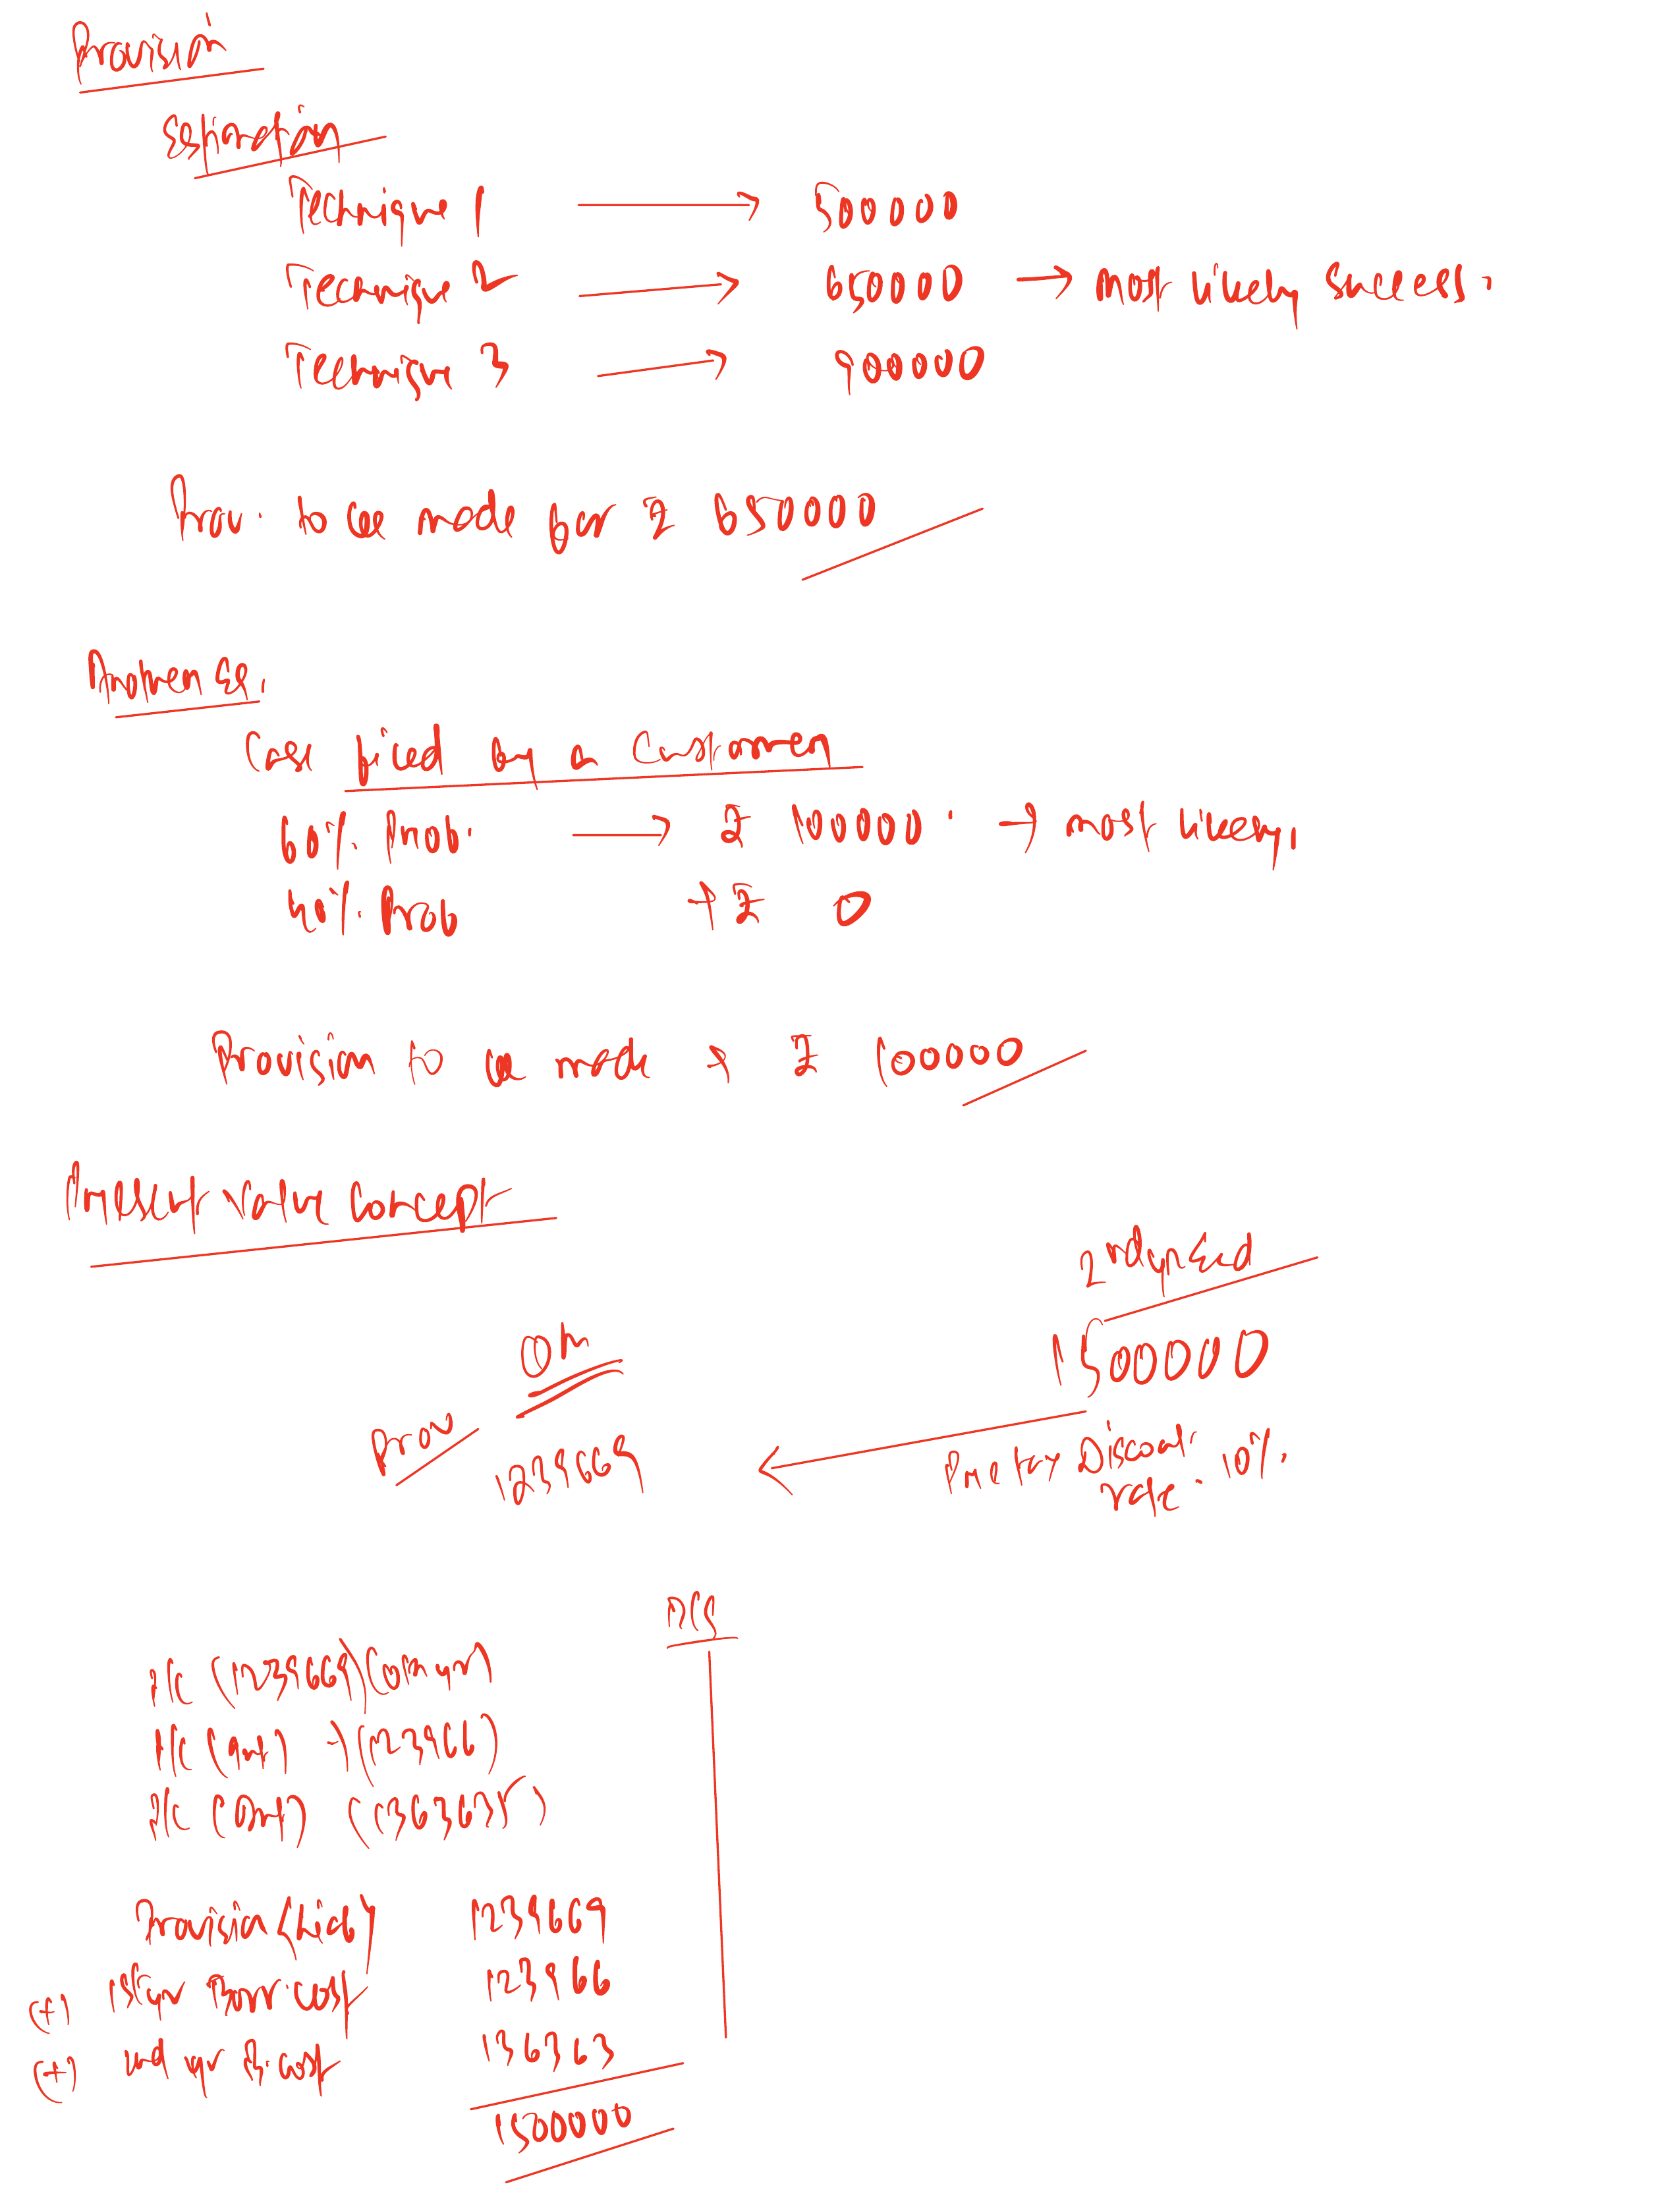 Provision
Estimation
Technique 1 → 500000
Technique 2 → 650000 → most likely success.
Technique 3 → 900000
Prov. to be made for ₹ 650000
Another Eg.
Case filed by a customer
60% Prob. → ₹ 100000. → most likely.
40% Prob → ₹ 0
Provision to be made → ₹ 100000
Present value concept
2nd yr End
0th
1500000
Prov
1239669
Pre tax Discount rate - 10%.
(1239669) (0th year)
(1st) → (123966)
(2nd) (136363)
Provision (Liab) 1239669
(+) 1st yr cost 123966
(+) 2nd yr cost 136363
1500000